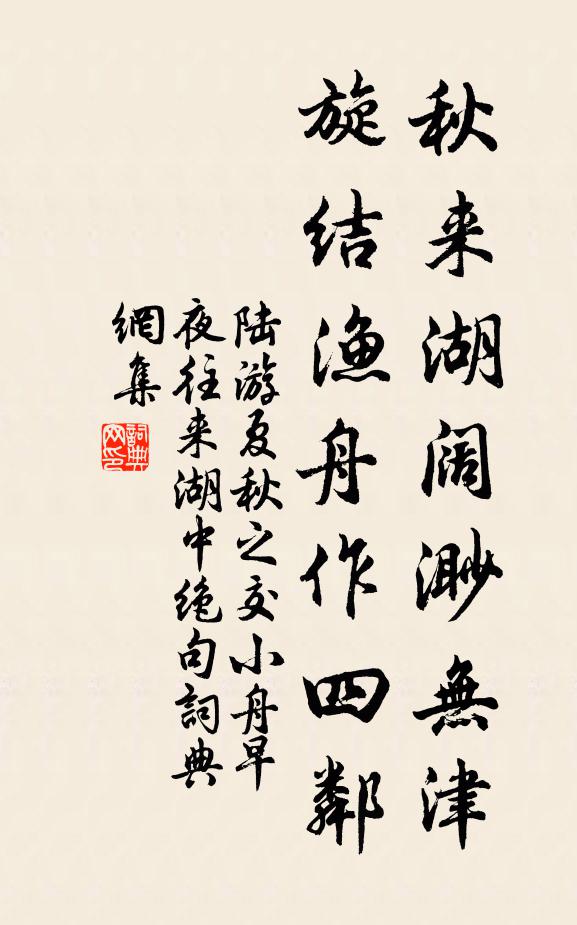 秋来湖阔渺無津
旋结渔舟作四鄰
陆游夏秋之交小舟早
夜往来湖中绝句詞典
網集
詞典
网印